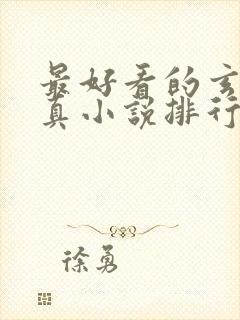 最好看的玄
真小说排行
徐勇